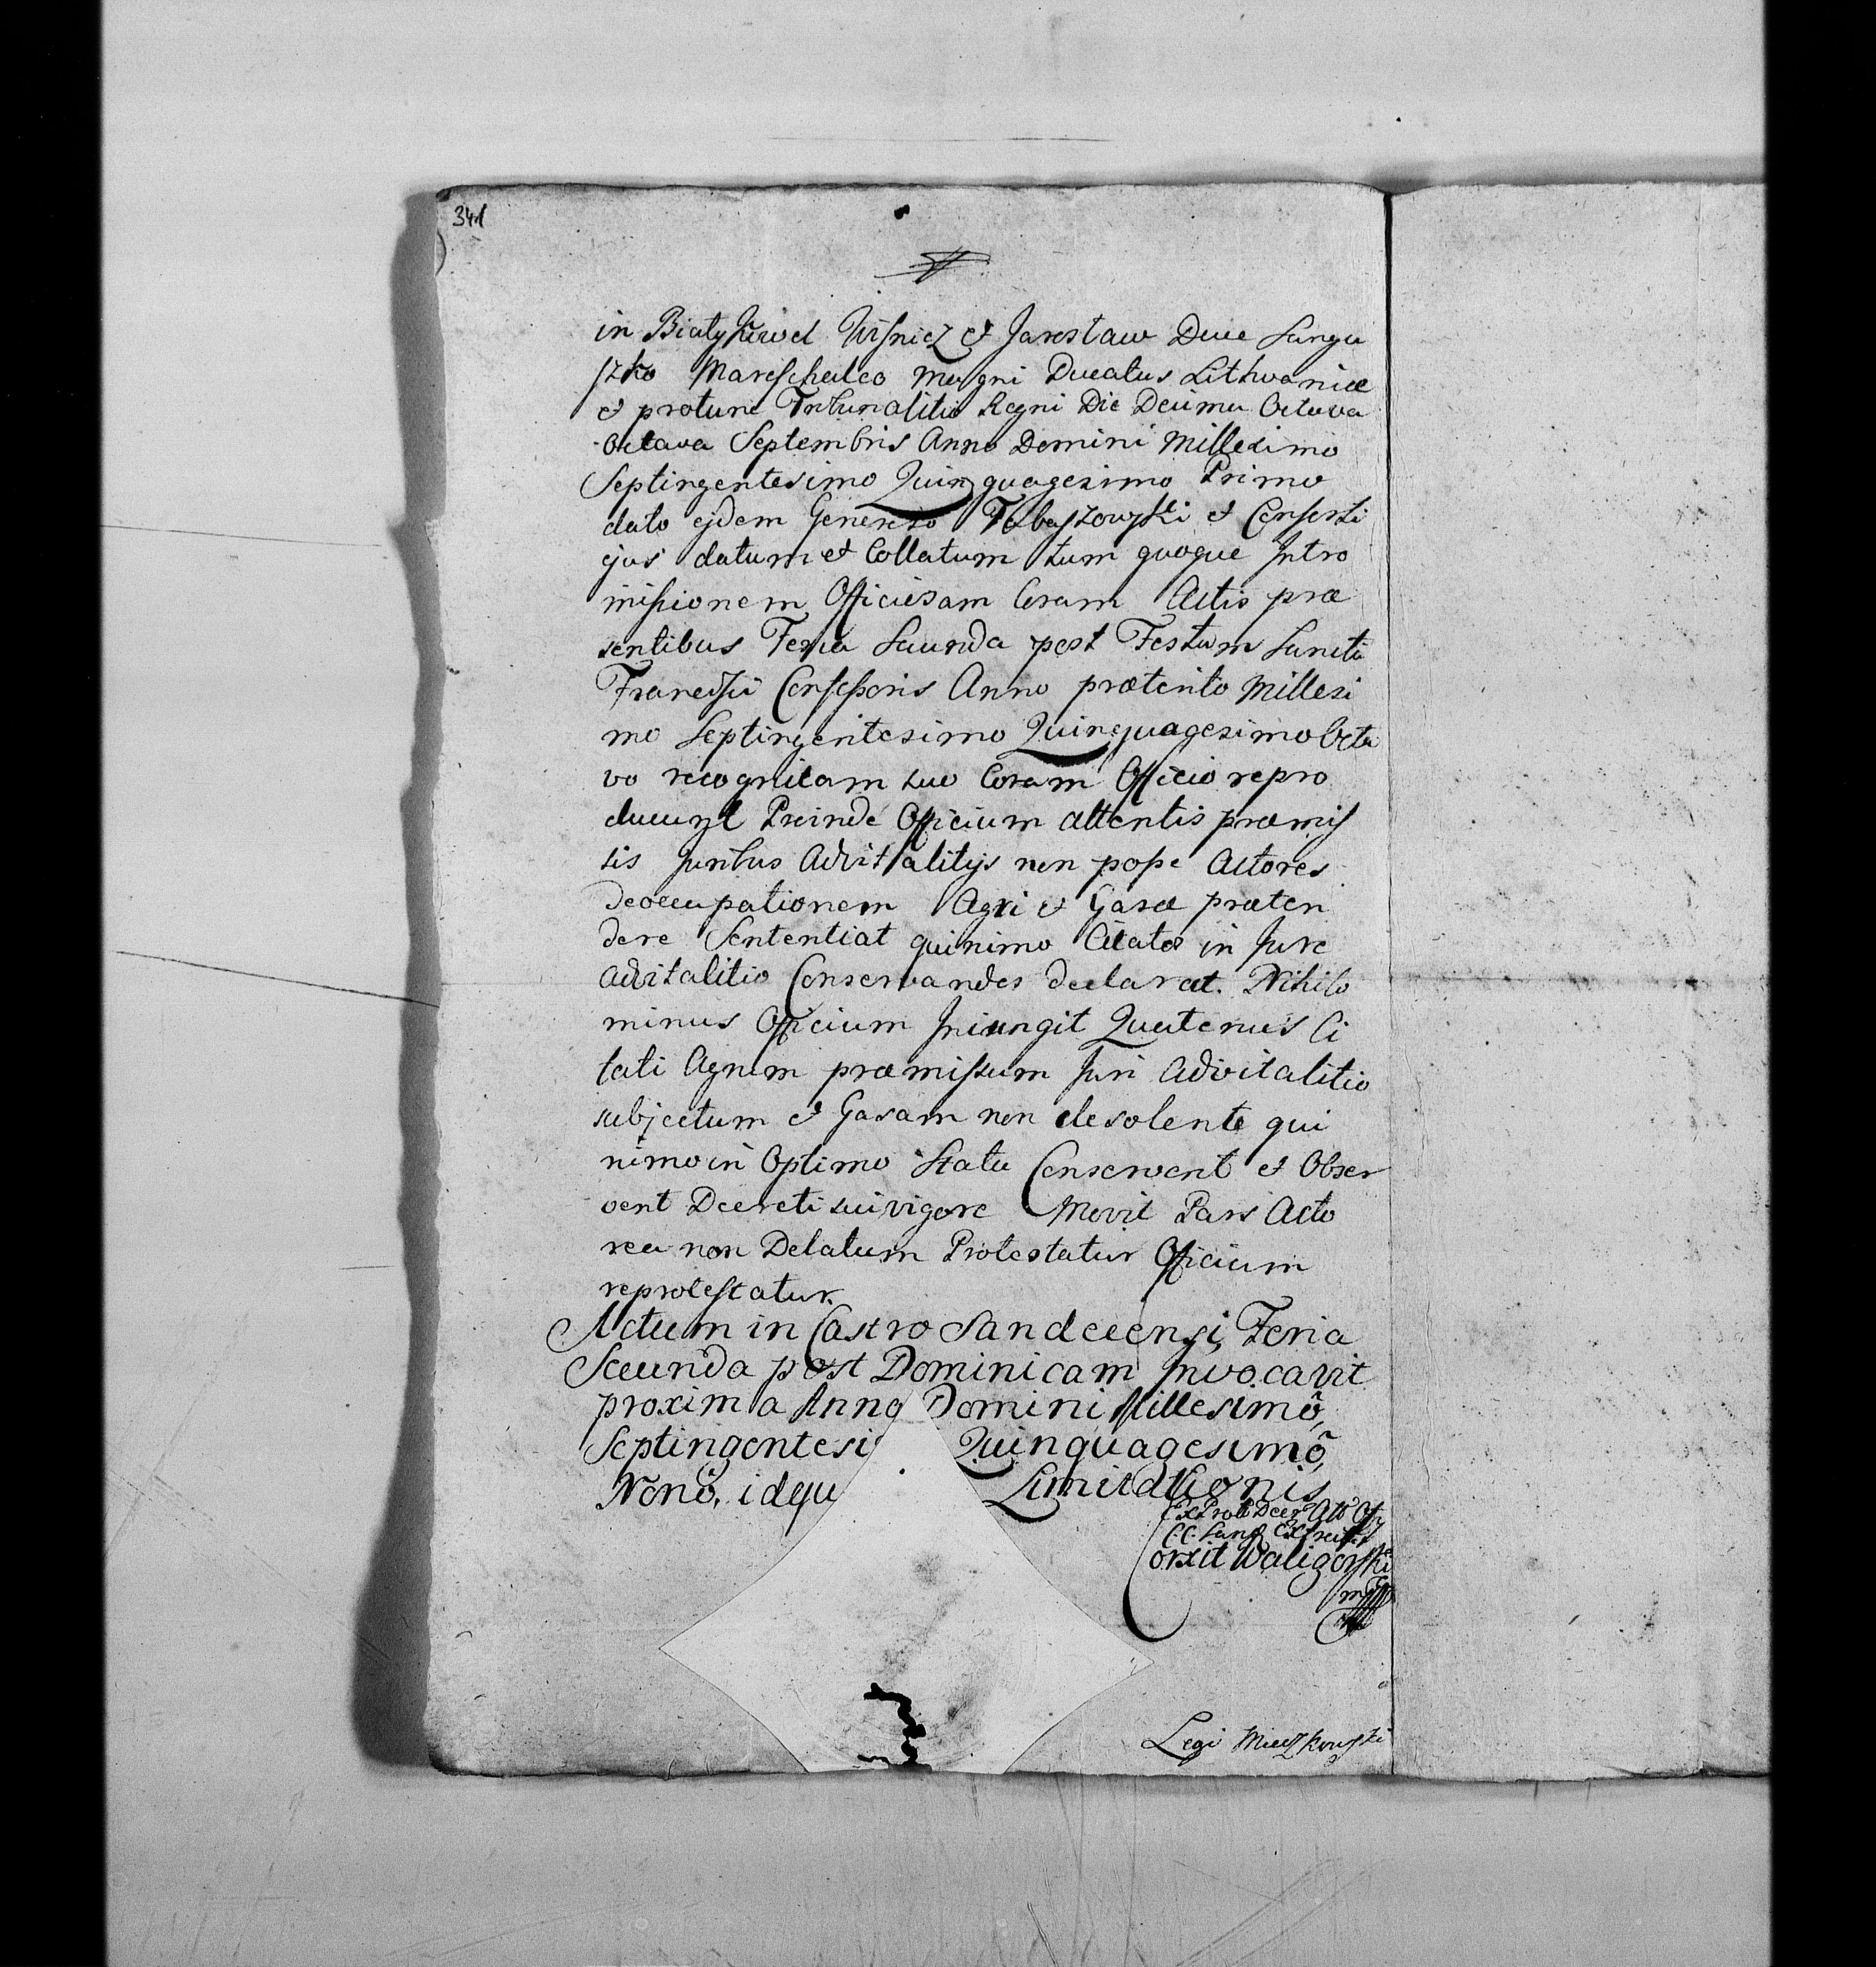 341
in Białykowel Wisnicz et Jarosław Duce Sangu
szko Mareschalco Magni Ducatus Lithvaniæ
et protunc Tribunalitio Regni Die Decima Octava
Octava Septembris Anno Domini Millesimo
Septingentesimo Quinquagesimo Primo
dato ejdem Generoso et Consorti
ejus datum et Collatum tum quoque Intro
missionem Officiosam Coram Actis præ
sentibus Feria Secunda post Festum Sancti
Francisci Confessoris Anno præterito Millesi
mo Septingentesimo Quinquagesimo Octa
vo recognitam suo Coram Officio repro
ducunt Proinde Officium attentis præmis
sis Juribus Advitalitijs non posse Actores
deoccupationem Agri et Gazæ præten
dere Sententiat quinimo Citatos in Jure
advitalitio Conservandos declarat. Nihilo
minus Officium Iniungit Quatenus Ci
tati Agrum præmissum Juri Advitalitio
subjectum et Gasam non desolente qui
nimo in Optimo Statu Conservent et Obser
vent Decreti sui vigore Movit Pars Acto
rea non Delatum Protestatur Officium
reprotestatur.
Actum in Castro Sandecensi, Feria
Secunda post Dominicam Invocavit
proxima Anno Domini Millesimô,
Septingentesi Quinquagesimô,
Nonô, idqu Limitationis
Ex Prot Decr
CC. Sand Extrad
Waligorski
mp
Legi Mieszkowski